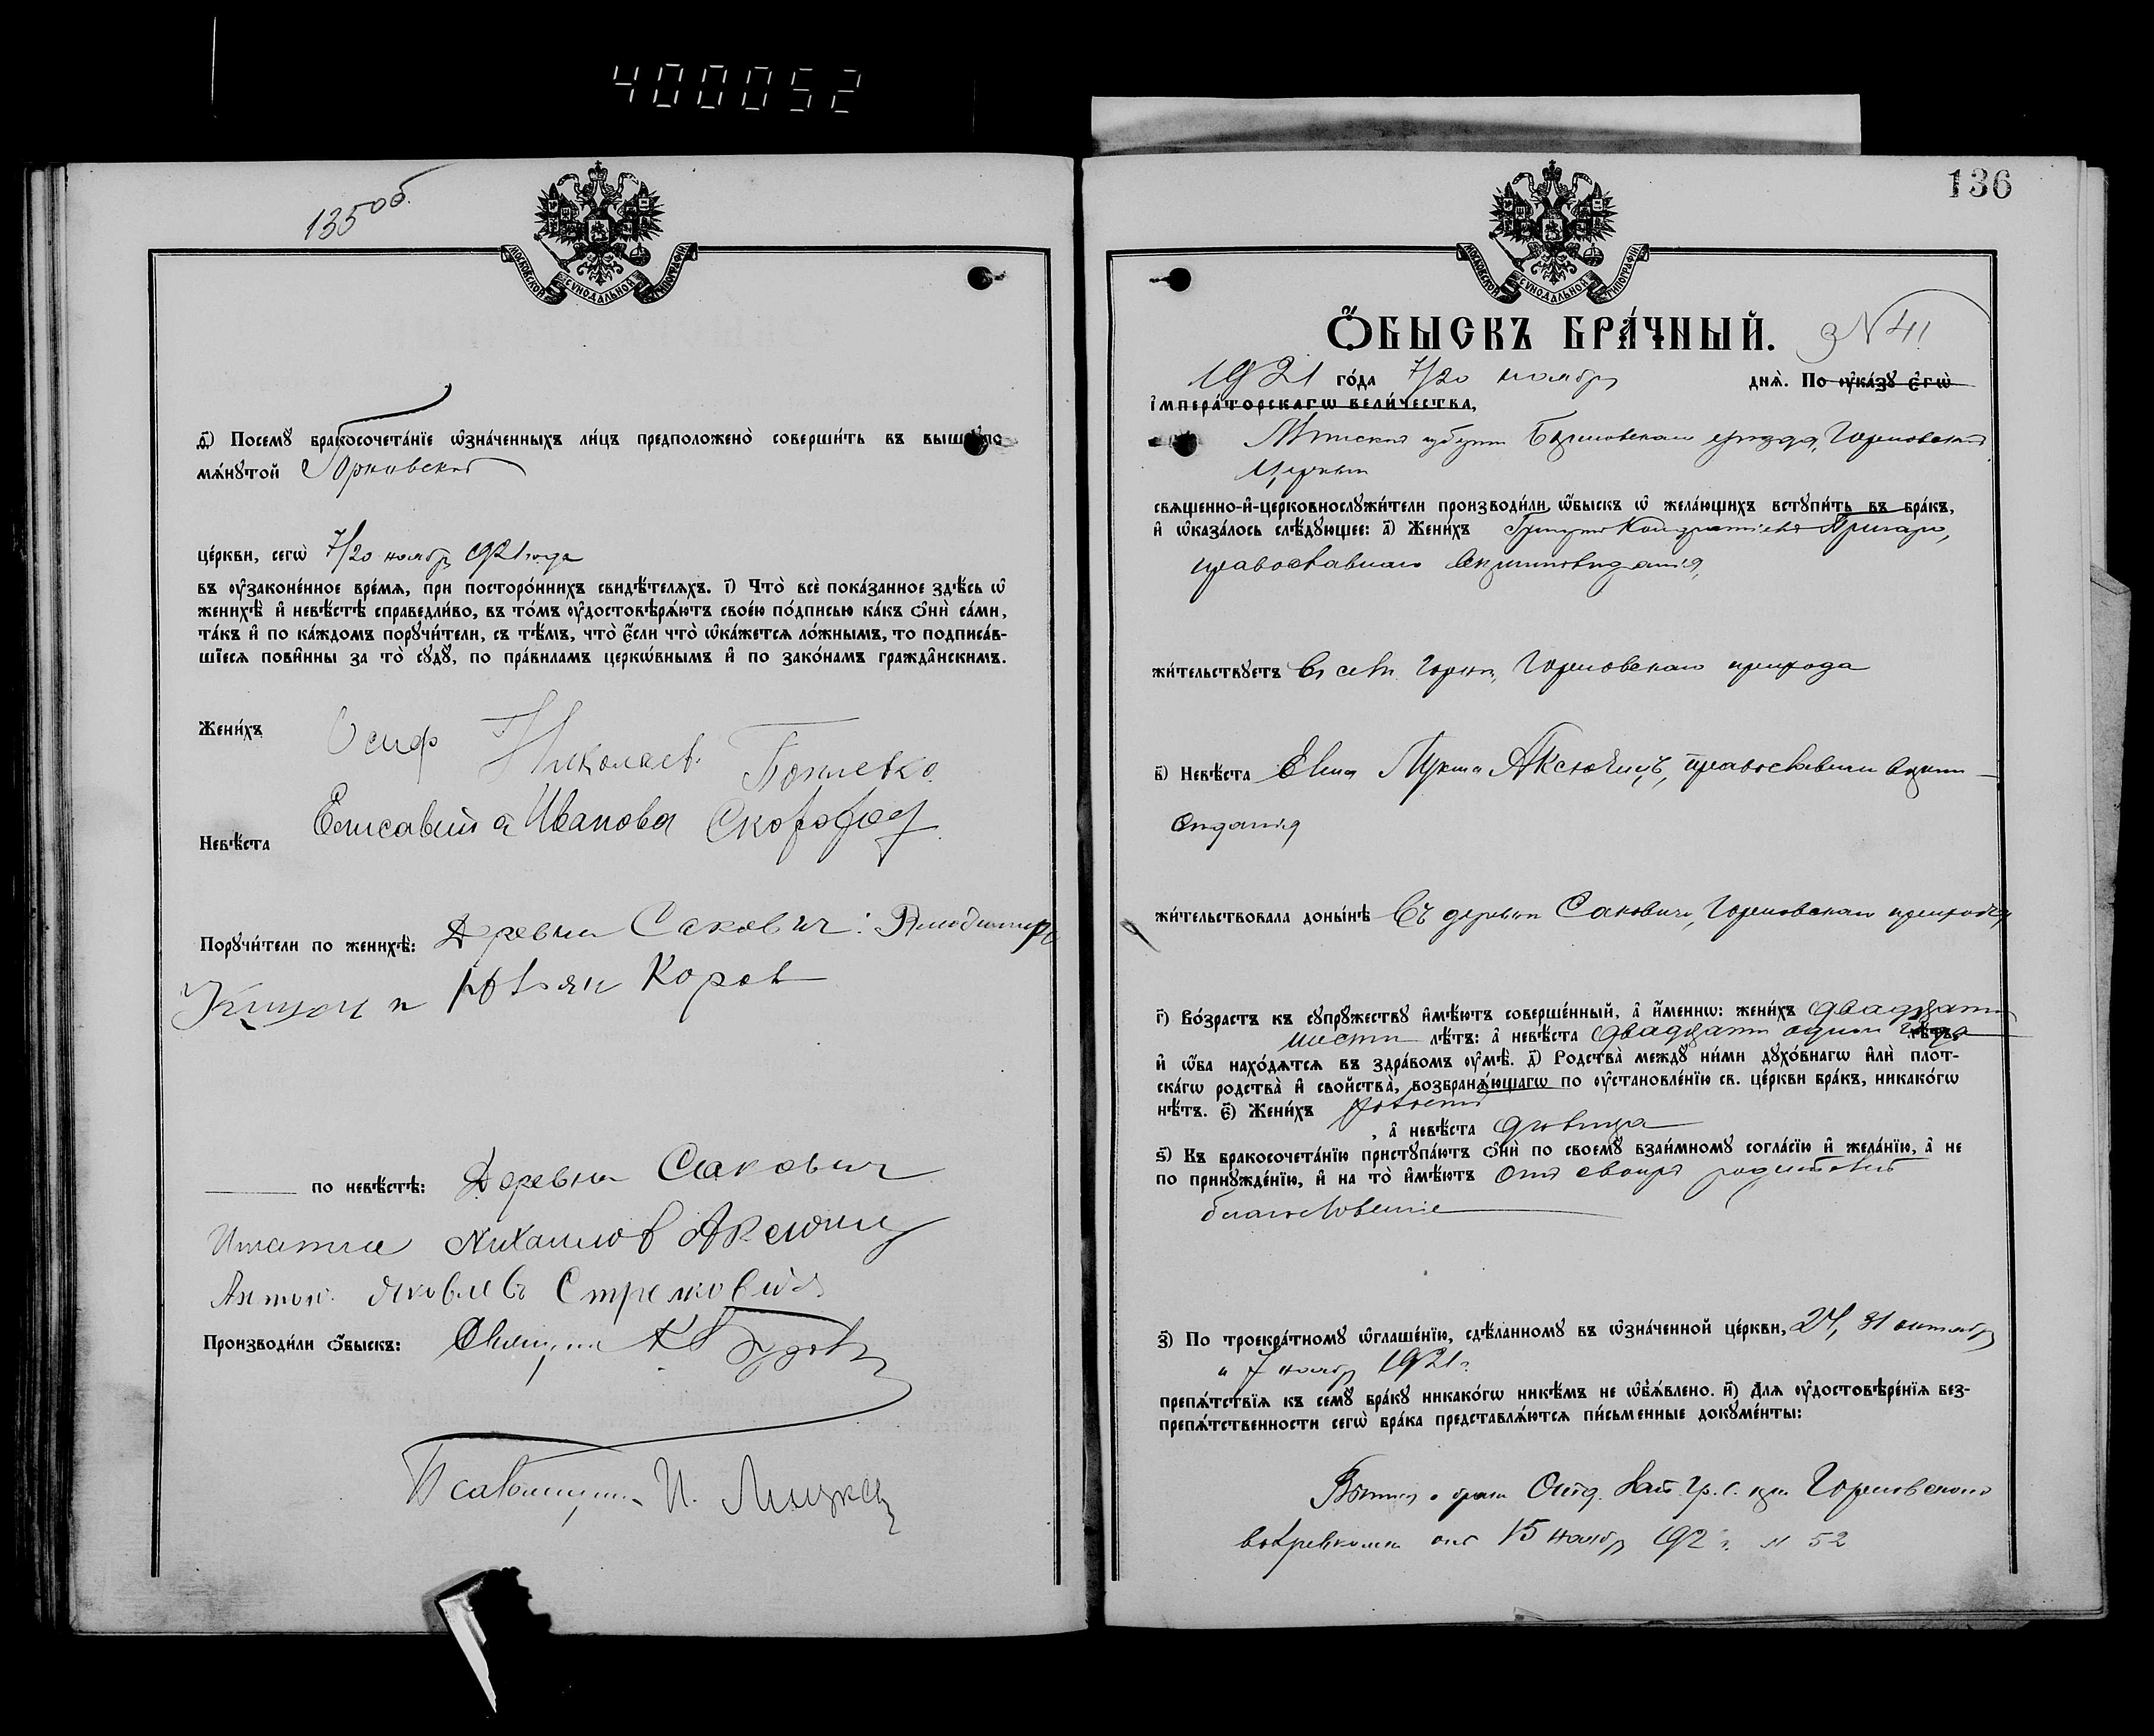 400052
135об.
МОСКОВСКОЙ СУНОДАЛЬНОЙ ТИПОГРАФІИ
д҃) Посемꙋ̀ бракосочета́нїе ѡ҆зна́ченныхъ ли́цъ предположено̀ соверши́ть въ вышепо-
мѧ́нꙋтой Горковской
це́ркви, сегѡ̀ 7/20 ноября 1921 года
въ ᲂу҆зако́ненное вре́мѧ, при посторо́ннихъ свидѣ́телѧхъ. і҃) Что̀ всѐ пока́занное здѣ́сь ѡ҆
женихѣ̀ и҆ невѣ́стѣ справедли́во, въ то́мъ ᲂу҆достовѣрѧ́ютъ свое́ю по́дписью ка́къ ѻ҆нѝ са́ми,
та́къ и҆ по ка́ждомъ порꙋчи́тели, съ тѣ́мъ, что̀ є҆́сли что̀ ѡ҆ка́жетсѧ ло́жнымъ, то подписа́в-
шїесѧ пови́нны за то̀ сꙋдꙋ̀, по пра́виламъ церкѡ́внымъ и҆ по зако́намъ гражда́нскимъ.
Жени́хъ Осиф Николаев
Невѣ́ста Елисавита Иванова Скороход
Порꙋчи́тели по женихѣ̀: Деревни Сакович:
и Коров
по невѣ́стѣ: Деревни Сакович
Игнатие Михаилов Аксючиц
Антон Яковлевъ
Производи́ли ѻ҆́быскъ: Священн.
Псаломщикъ И.
136
МОСКОВСКОЙ СУНОДАЛЬНОЙ ТИПОГРАФІИ
Ѻ҆́БЫСКЪ БРА́ЧНЫЙ. № 41
1921 го́да 7/20 ноября днѧ̀. По ᲂу҆ка́зꙋ є҆гѡ̀
і҆мпера́торскагѡ вели́чества,
Минской губерніи Борисовскаго уезда, Горковской
Церкви
свѧщенно-и҆-церковнослꙋжи́тели производи́ли ѻ҆́быскъ ѡ҆ жела́ющихъ встꙋпи́ть въ бра́къ,
и҆ ѡ҆каза́лось слѣ́дꙋющее: а҃) Жени́хъ Григорій Кондратіевъ
православнаго вероисповеданія,
жи́тельствꙋетъ въ селе Горки, Горковскаго прихода
в҃) Невѣ́ста Елена Аксючицъ, православнаго вероис-
поведанія
жи́тельствовала доны́нѣ въ деревни Саковичи, Горковскаго прихода
г҃) Во́зрастъ къ сꙋпрꙋ́жествꙋ и҆мѣ́ютъ соверше́нный, а҆ и҆́менно: жени́хъ двадцати
шести лѣ́тъ: а҆ невѣ́ста двадцати одного года лѣ́тъ,
и҆ ѻ҆́ба нахо́дѧтсѧ въ здра́вомъ ᲂу҆мѣ̀. д҃) Родства̀ междꙋ̀ ни́ми дꙋхо́внагѡ и҆лѝ плот-
ска́гѡ родства̀ и҆ сво́йства̀, возбранѧ́ющагѡ по ᲂу҆становле́нїю св. це́ркви бра́къ, никако́гѡ
нѣ́тъ. є҃) Жени́хъ холостъ
, а҆ невѣ́ста девица
ѕ҃) Къ бракосочета́нїю пристꙋпа́ютъ ѻ҆нѝ по своемꙋ̀ взаи́мномꙋ согла́сїю и҆ жела́нїю, а҆ не
по принꙋжде́нїю, и҆ на то̀ и҆мѣ́ютъ отъ своихъ родителей
благословеніе
з҃) По троекра́тномꙋ ѡ҆глаше́нїю, сдѣ́ланномꙋ въ ѡ҆зна́ченной це́ркви, 24, 31 октября
и 7 ноября 1921 г.
препѧ́тствїѧ къ семꙋ̀ бра́кꙋ никако́гѡ никѣ́мъ не ѡ҆б̾ѧ́влено. и҃) Для ᲂу҆достовѣре́нїѧ без-
препѧ́тственности сегѡ̀ бра́ка представлѧ́ютсѧ пи́сьменные докꙋме́нты:
о браке Отд. Зап. Гр. С. при Горковскаго
волревкома отъ 15 ноября 192 г. № 52